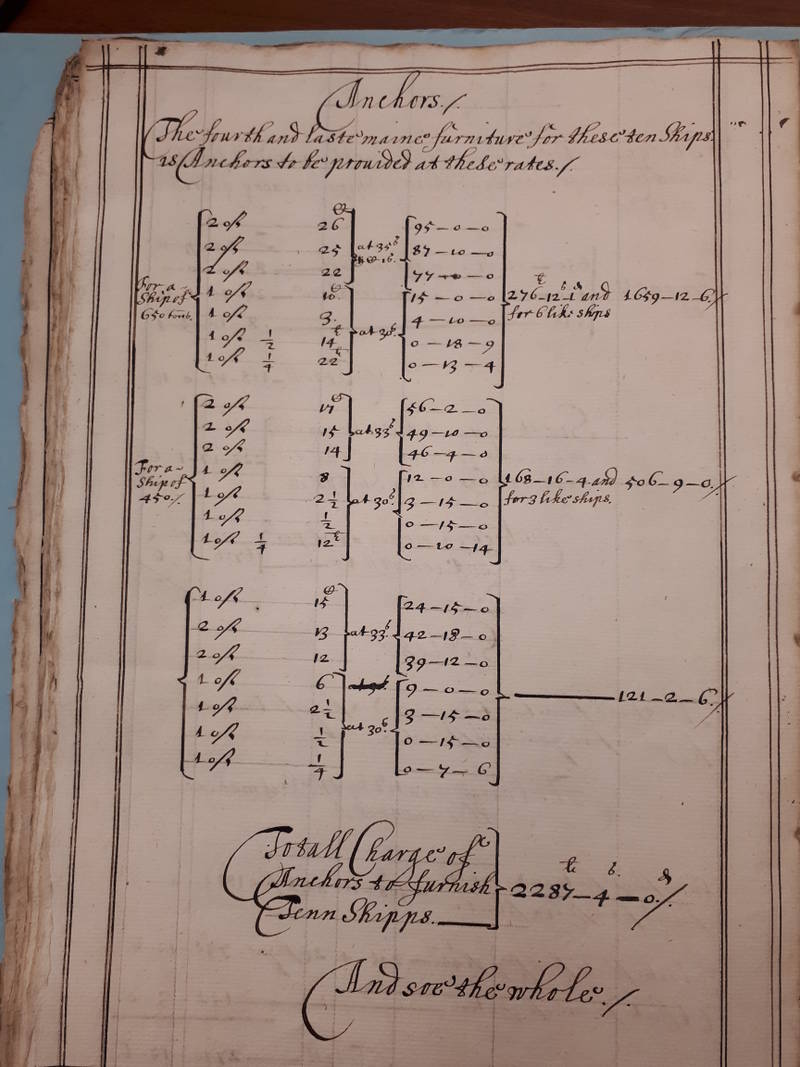 Anchors./
The fourth and laste maine furniture for these ten Ships
is Anchors to be prouided at these rates./
For a Ship of 650 tonns.
2 of 26 95-0-0
2 of 25 at 35s 87-10-0
2 of 22 77-0-0
1 of 10 15-0-0
1 of 3 at 30s 4-10-0
1 of 1/2 14 0-18-9
1 of 1/4 22 0-13-4
276-12-1 and 1659-12-6/
for 6 like ships
For a Ship of 450/.
2 of 17 56-2-0
2 of 15 at 33s 49-10-0
2 of 14 46-4-0
1 of 8 12-0-0
1 of 2 1/2 at 30s 3-15-0
1 of 1/2 0-15-0
1 of 1/4 12 0-10-14
168-16-4 and 506-9-0./
for 3 like ships.
1 of 15 24-15-0
2 of 13 at 33s 42-18-0
2 of 12 39-12-0
1 of 6 9-0-0
1 of 2 1/2 at 30s 3-15-0
1 of 1/2 0-15-0
1 of 1/4 0-7-6
121-2-6./
Totall Charge of
Anchors to furnish
Tenn Shipps.
2287-4-0./
And soe the whole./